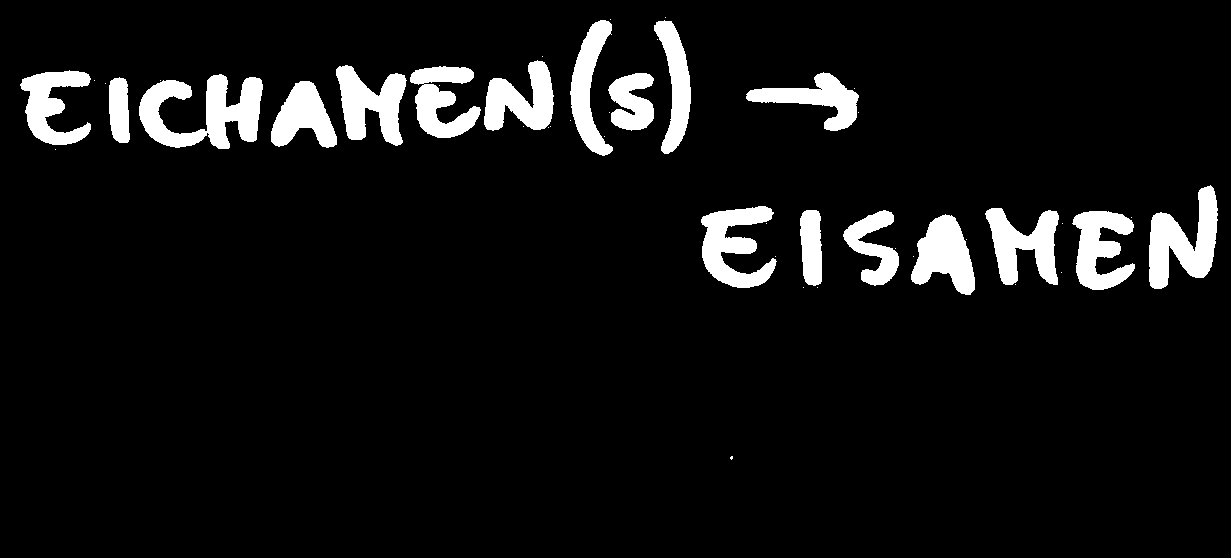 EICHAMEN(S) →
EISAMEN